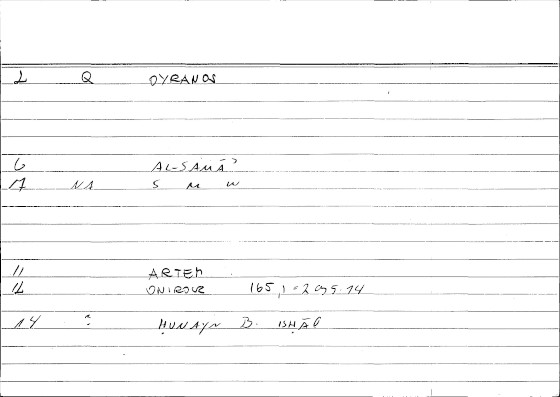 2 Q OYRANOS
6 AL-SAMĀʾ
17 NA S M W
11 ARTEM
12 ONIROCR 165,1
14 : ḤUNAYN B. ISḤĀQ